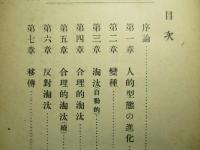 目次
序論
第一章 人的型態の進化
第二章 變種
第三章 淘汰自動的
第四章 合理的淘汰
第五章 合理的淘汰續
第六章 反對淘汰
第七章 移傳